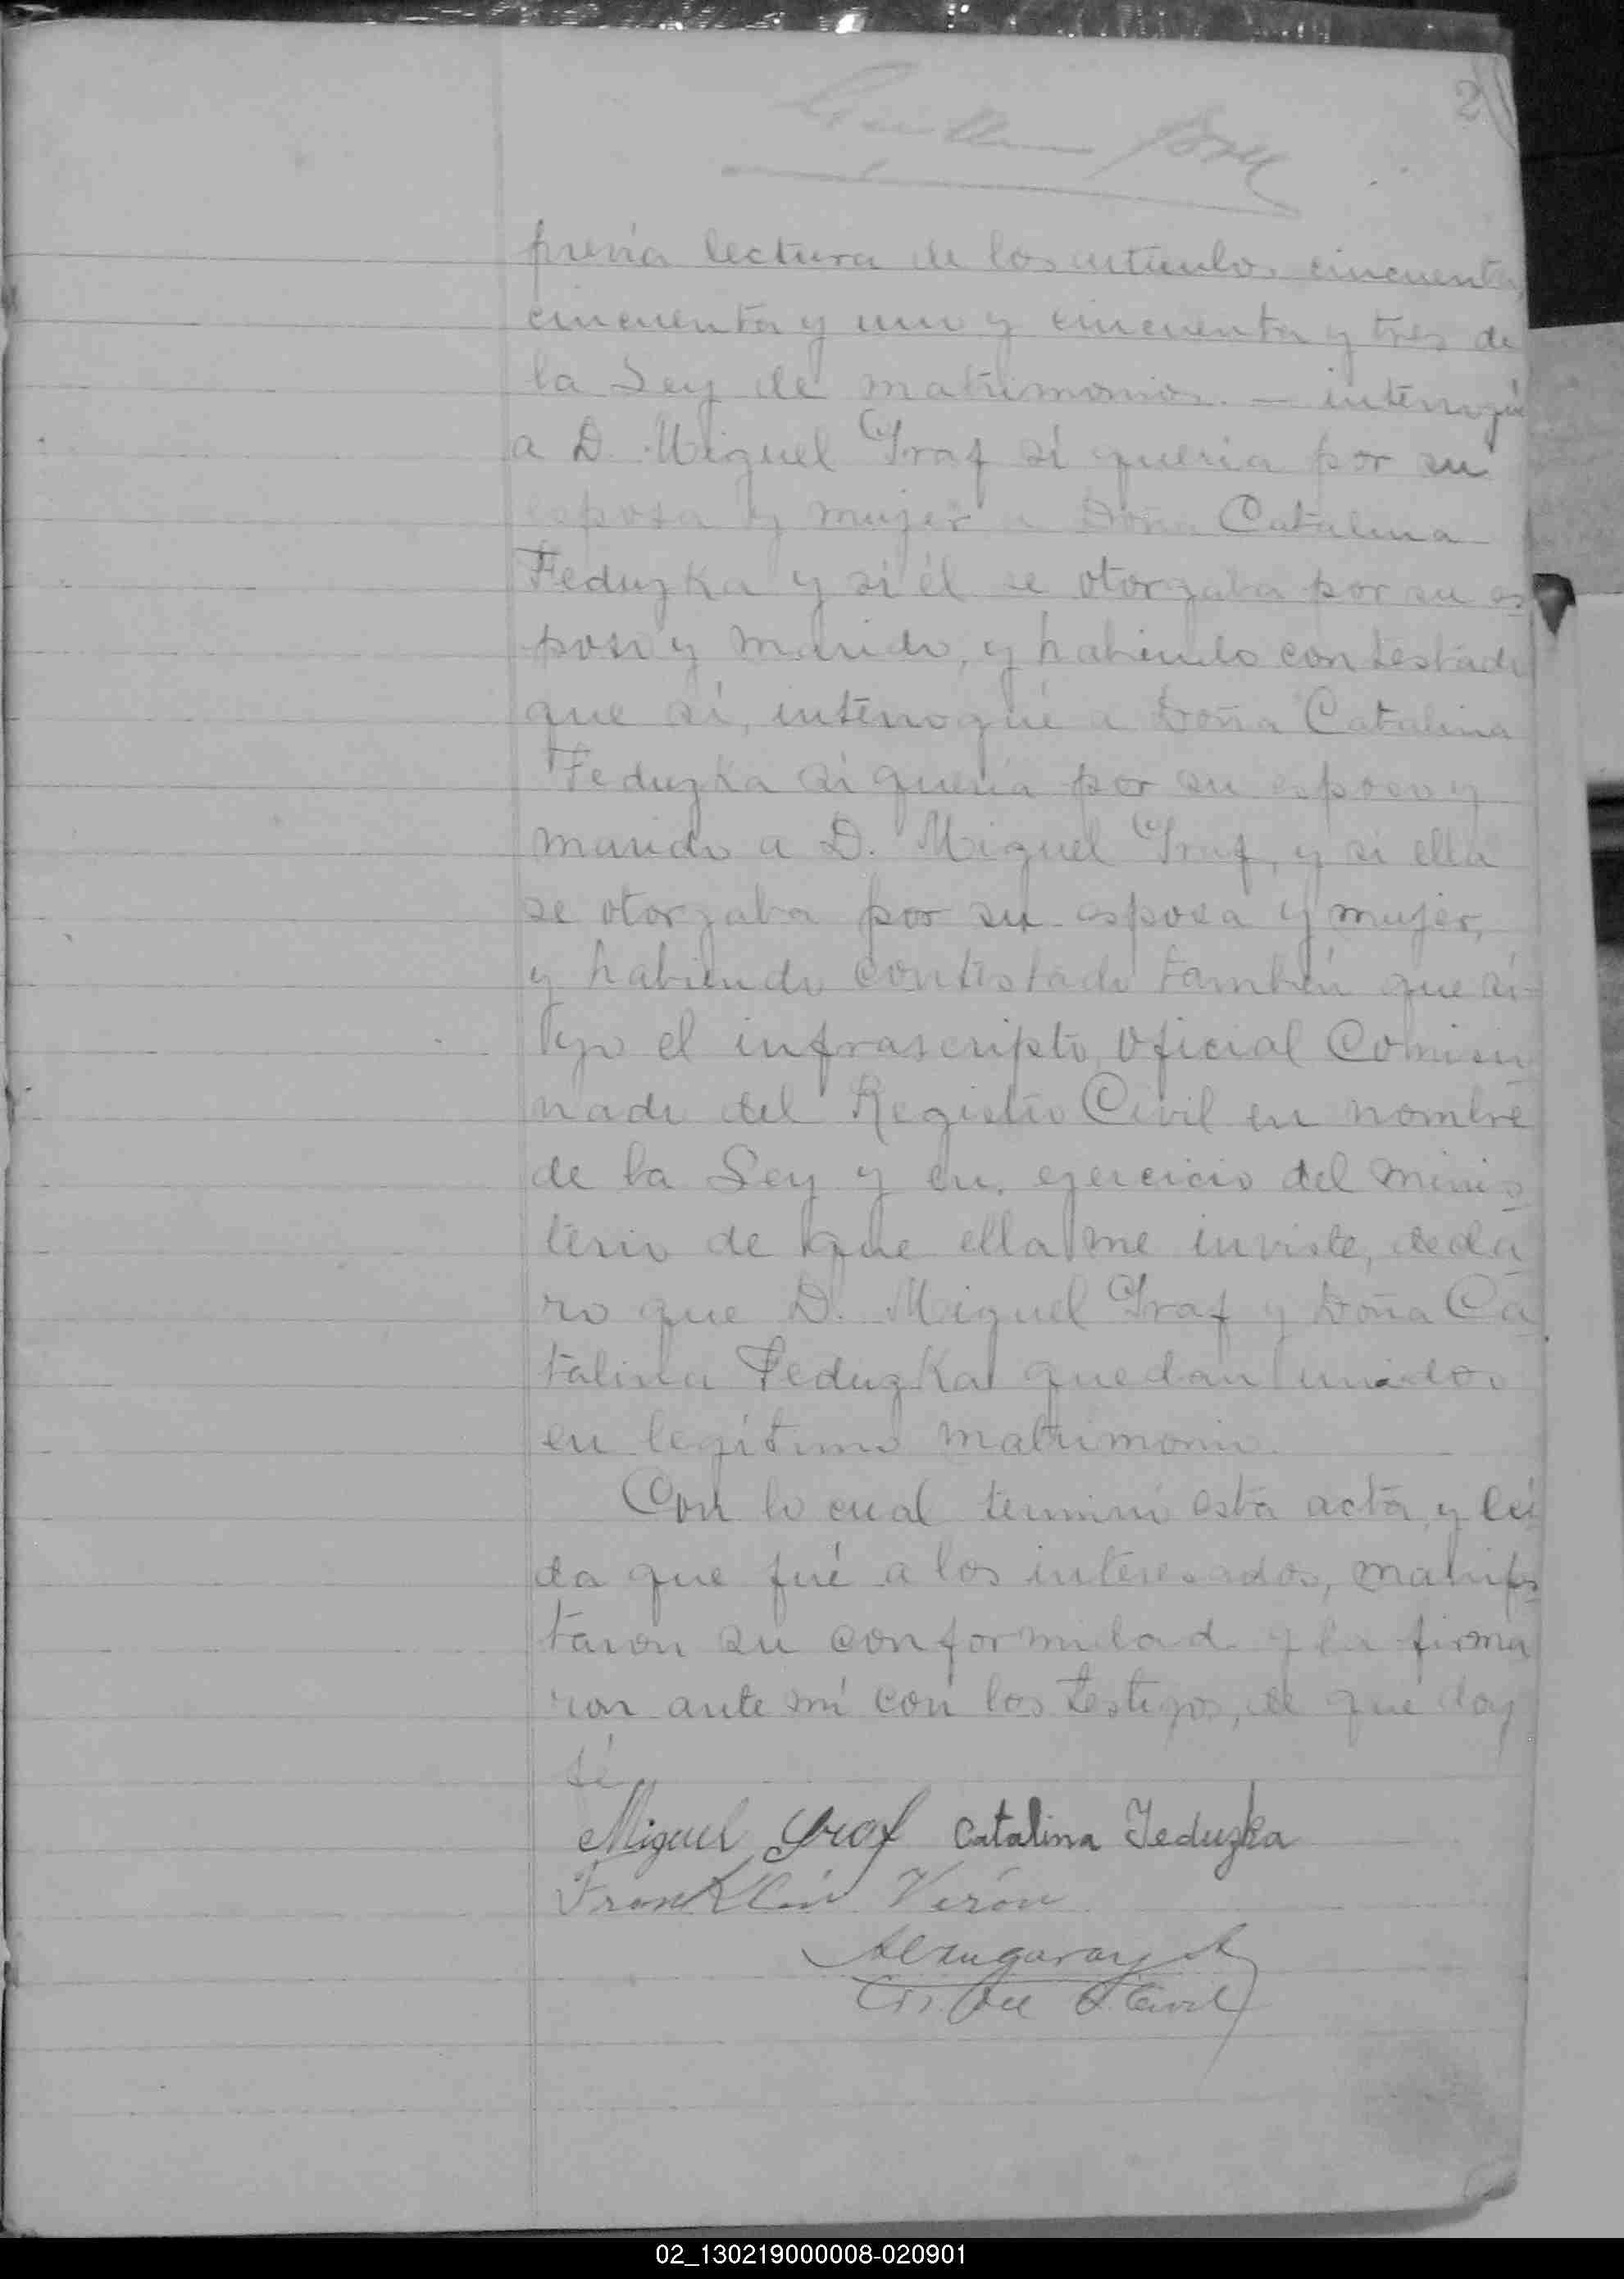 2
previa lectura de los artículos cincuenta,
cincuenta y uno y cincuenta y tres de
la Ley de matrimonios. — interrogué
a D. Miguel Graf si queria por su
esposa y mujer a Doña Catalina
Feduzka y si él se otorgaba por su es
poso y marido, y habiendo contestado
que sí, interrogué a Doña Catalina
Feduzka si queria por su esposo y
marido a D. Miguel Graf, y si ella
se otorgaba por su esposa y mujer,
y habiendo contestado también que sí
Yo el infrascripto, Oficial Comisio
nado del Registro Civil en nombre
de la Ley y en ejercicio del minis
terio de que ella me inviste, decla
ro que D. Miguel Graf y Doña Ca
talina Feduzka quedan unidos
en legítimo matrimonio.
Con lo cual terminó esta acta, y leí
da que fué a los interesados, manifes
taron su conformidad y la firma
ron ante mí con los testigos, de que doy
fé.
Miguel Graf Catalina Feduzka
Franklin Verón
Civil
02_130219000008-020901